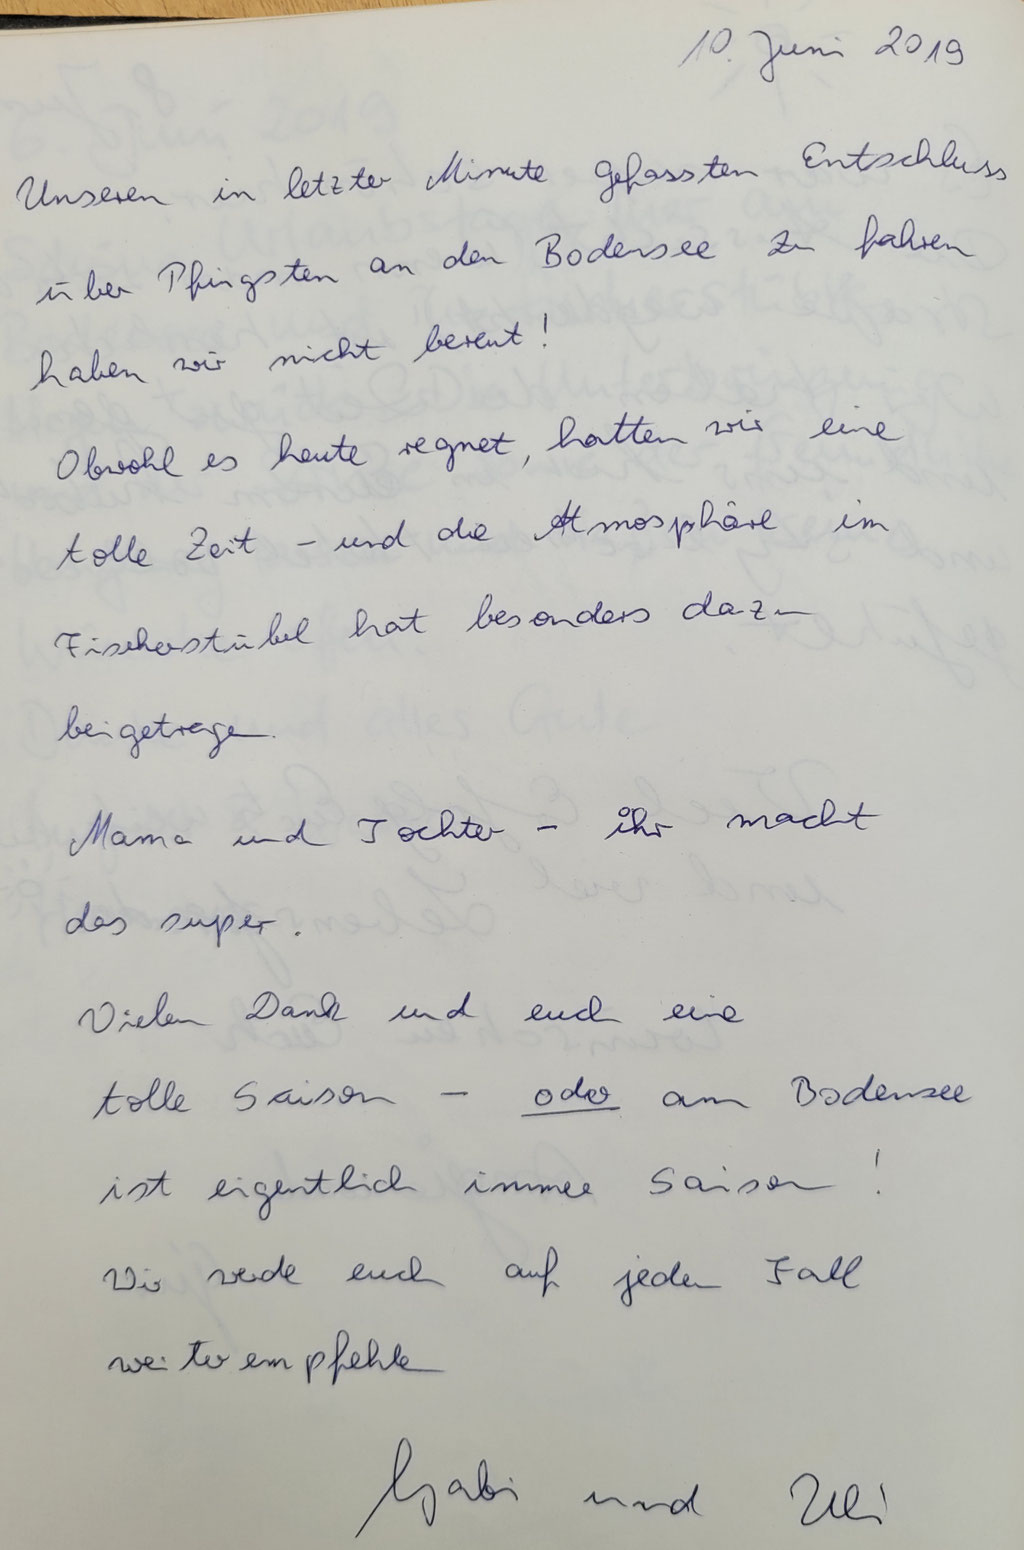 10. Juni 2019
Unseren in letzter Minute gefassten Entschluss
über Pfingsten an den Bodensee zu fahren
haben wir nicht bereut!
Obwohl es heute regnet, hatten wir eine
tolle Zeit - und die Atmosphäre im
Fischerstübel hat besonders dazu
beigetragen.
Mama und Tochter - ihr macht
das super.
Vielen Dank und euch eine
tolle Saison - oder am Bodensee
ist eigentlich immer Saison!
Wir werden euch auf jeden Fall
weiterempfehlen
Gabi und Uli